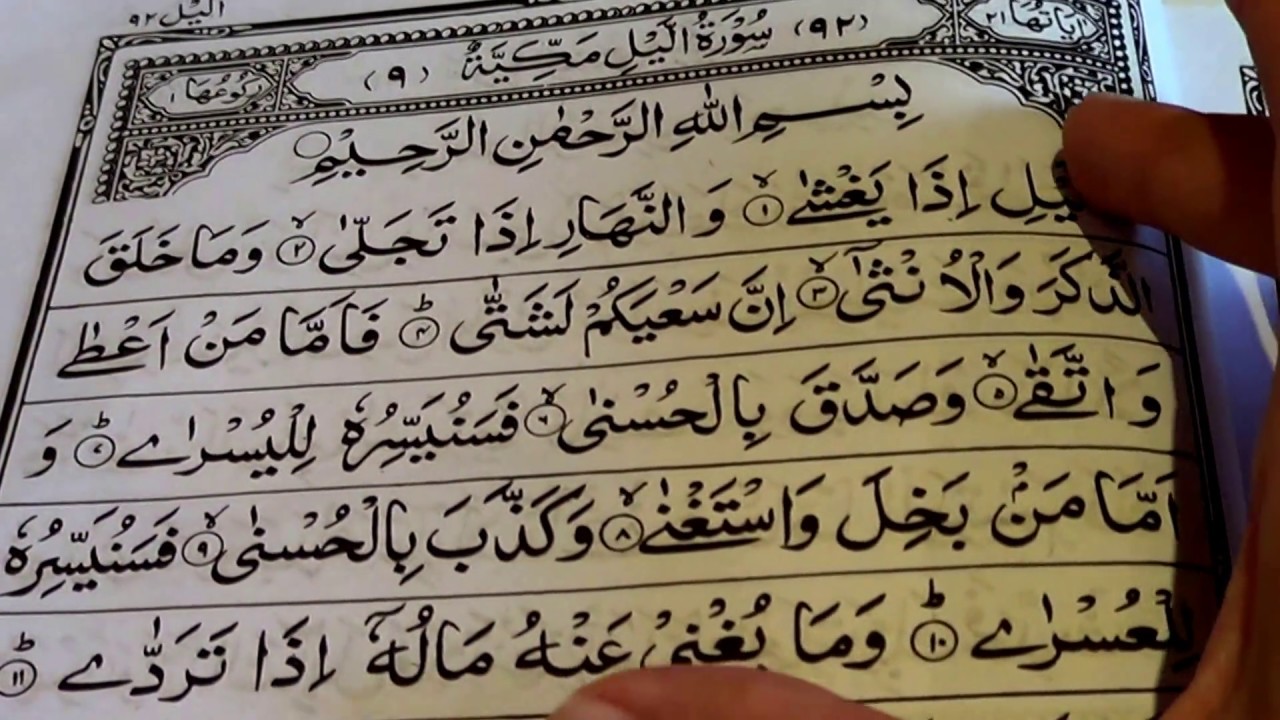 الیل ٩٢
اٰیَاتُهَا ٢١ (٩٢) سُوْرَةُ الَّیْلِ مَكِّیَّةٌ (٩) رُكُوْعُهَا ١
بِسْمِ اللّٰهِ الرَّحْمٰنِ الرَّحِیْمِ
اِذَا یَغْشٰى ١ وَ النَّهَارِ اِذَا تَجَلّٰى ٢ وَمَا خَلَقَ
الذَّكَرَ وَالْاُنْثٰۤى ٣ اِنَّ سَعْیَكُمْ لَشَتّٰى ٤ؕ فَاَمَّا مَنْ اَعْطٰى
وَ اتَّقٰى ٥ وَصَدَّقَ بِالْحُسْنٰى ٦ فَسَنُیَسِّرُهٗ لِلْیُسْرٰى ٧ؕ وَ
اَمَّا مَنْۢ بَخِلَ وَاسْتَغْنٰى ٨ وَكَذَّبَ بِالْحُسْنٰى ٩ فَسَنُیَسِّرُهٗ
لِلْعُسْرٰى ١٠ؕ وَمَا یُغْنِیْ عَنْهُ مَالُهٗۤ اِذَا تَرَدّٰى ١١ؕ